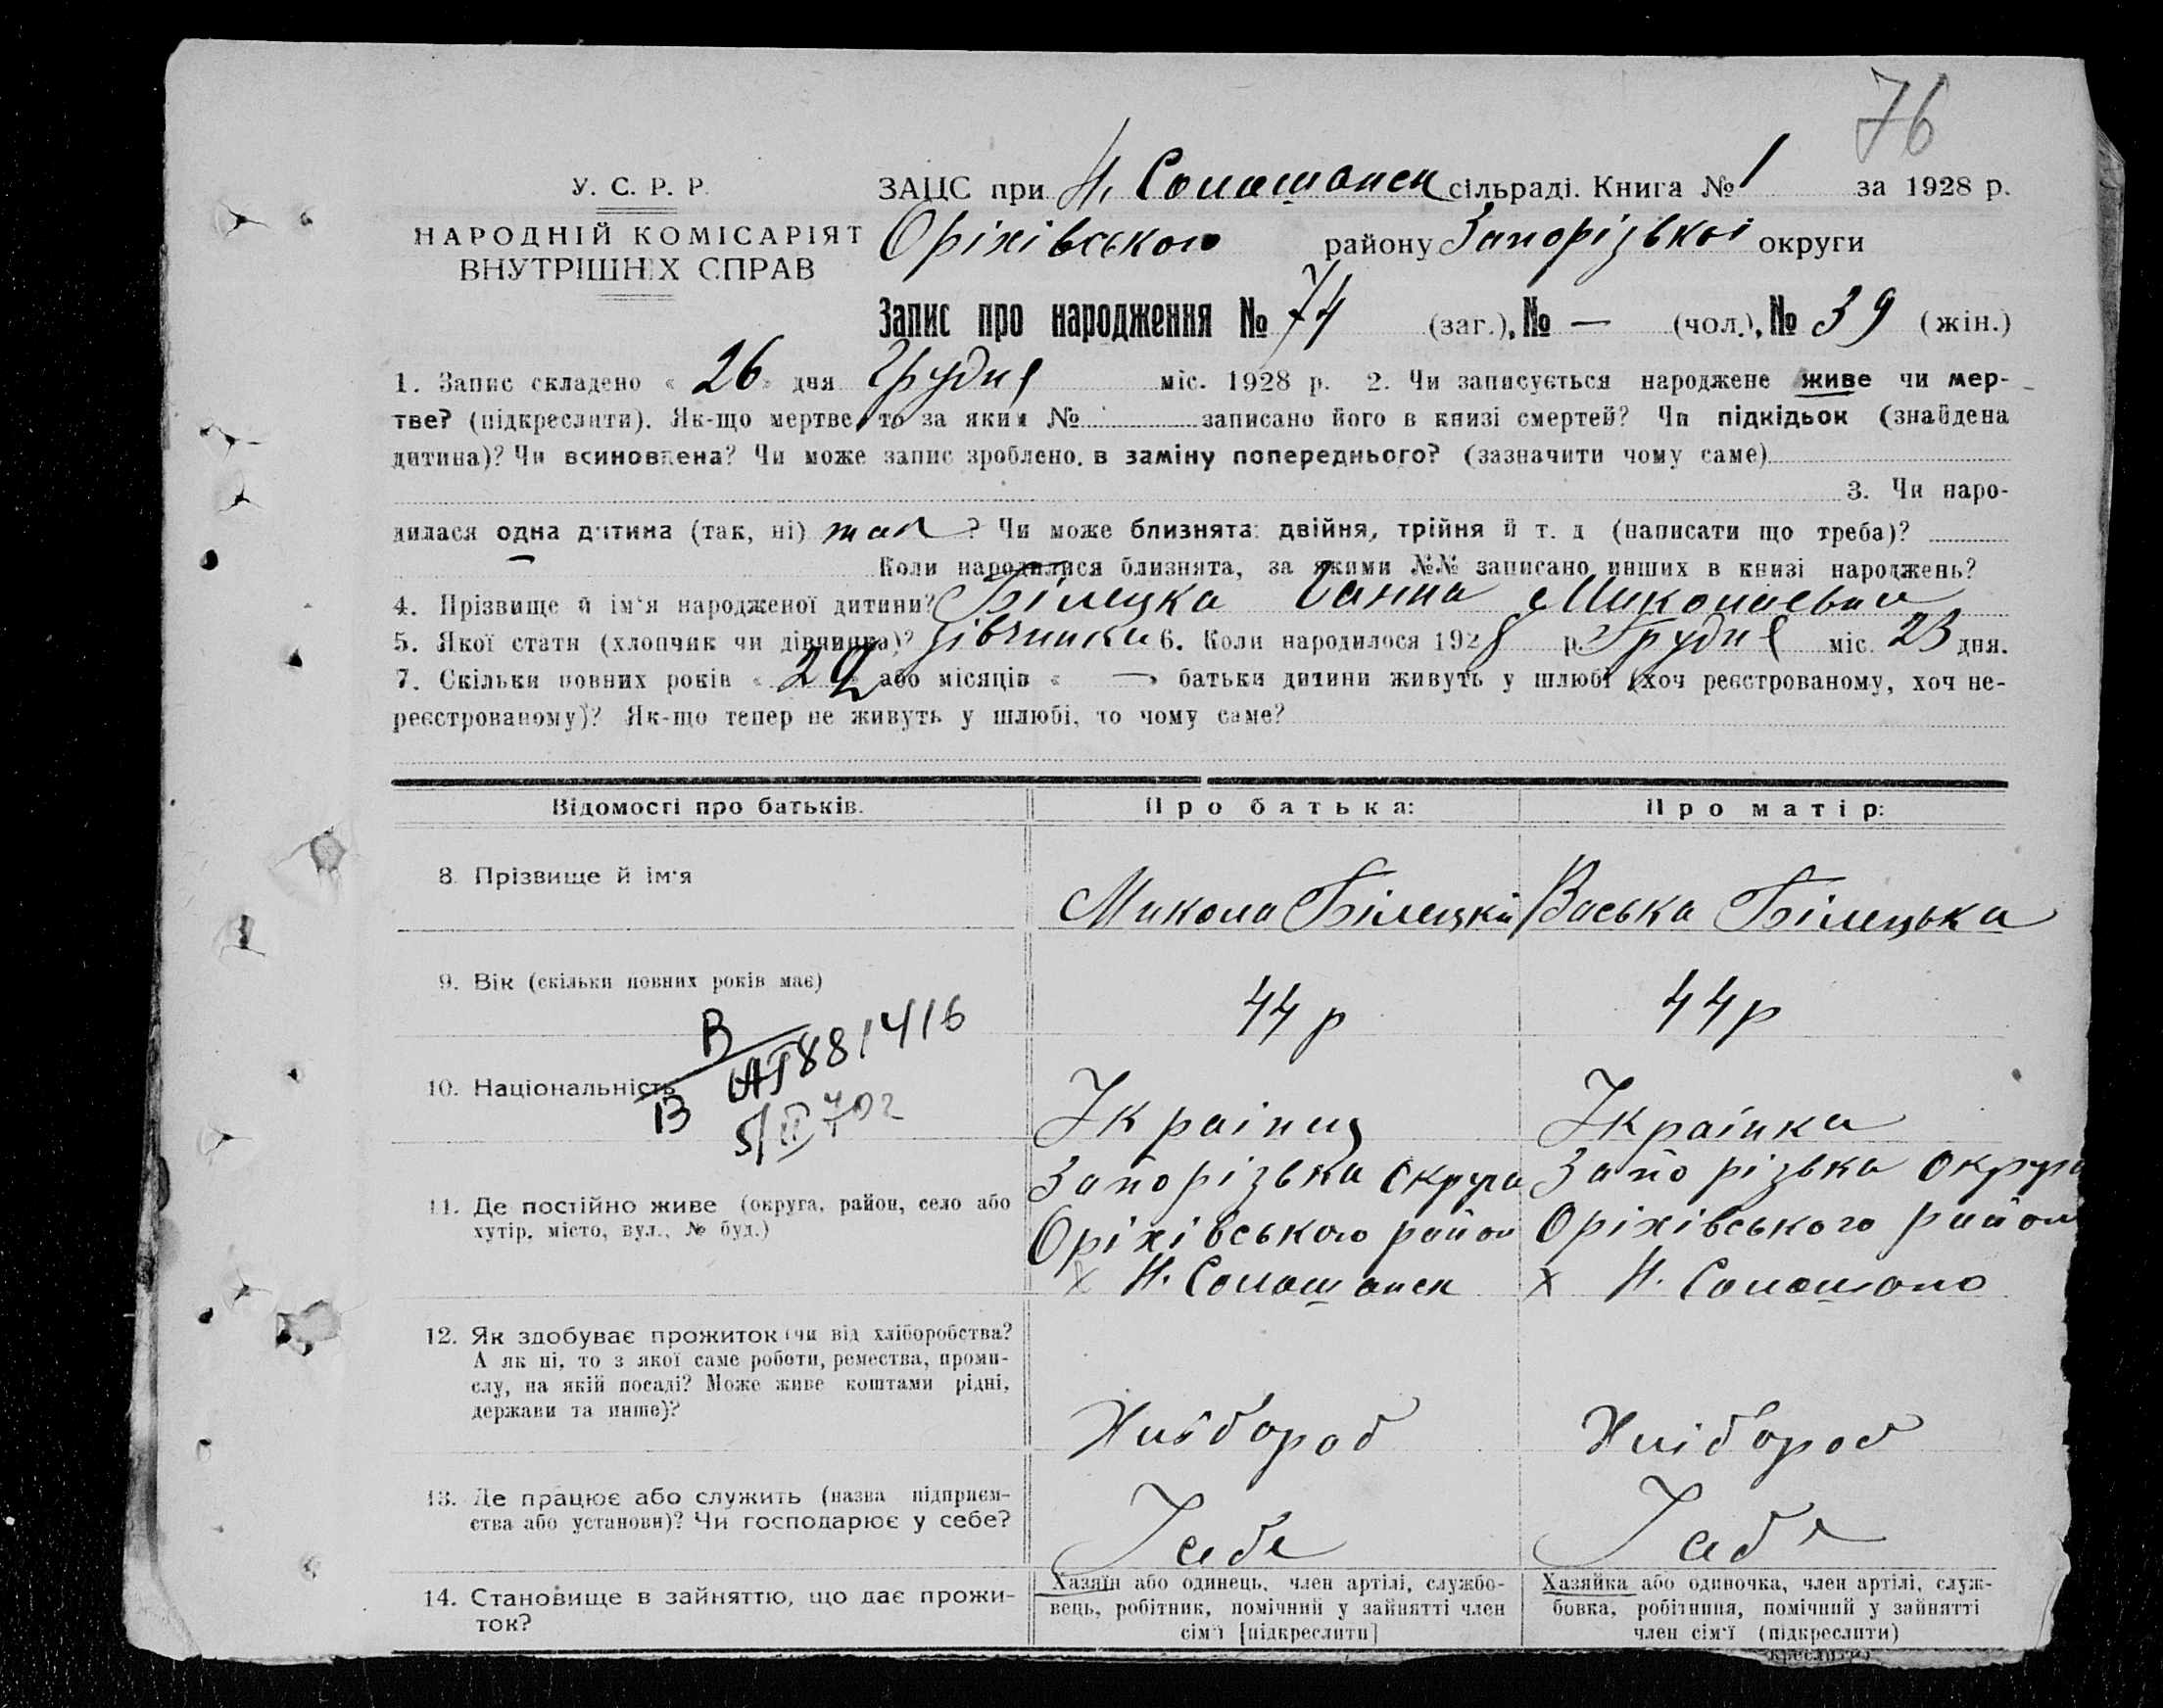 76
У. С. Р. Р.
НАРОДНІЙ КОМІСАРІЯТ
ВНУТРІШНІХ СПРАВ
ЗАЦС при Н. Солошанск сільраді. Книга № 1 за 1928 р.
Оріхівського району Запорізької округи
Запис про народження № 74 (заг.), № — (чол.), № 39 (жін.)
1. Запис складено « 26 » дня Грудня міс. 1928 р. 2. Чи записується народжене живе чи мер-
тве? (підкреслити). Як-що мертве, то за яким № записано його в книзі смертей? Чи підкідьок (знайдена
дитина)? Чи всиновлена? Чи може запис зроблено в заміну попереднього? (зазначити чому саме)
3. Чи наро-
дилася одна дитина (так, ні) так ? Чи може близнята: двійня, трійня й т. д (написати що треба)?
Коли народилися близнята, за якими №№ записано инших в книзі народжень?
4. Прізвище й ім'я народженої дитини? Білецка Ганна Миколаевна
5. Якої стати (хлопчик чи дівчинка)? дівчинка 6. Коли народилося 1928 р. Грудня міс. 23 дня.
7. Скільки повних років « 22 » або місяців « — » батьки дитини живуть у шлюбі (хоч реєстрованому, хоч не-
реєстрованому)? Як-що тепер не живуть у шлюбі, то чому саме?
Відомості про батьків.
Про батька:
Про матір:
8. Прізвище й ім'я
Микола Білецкій
Васька Білецька
9. Вік (скільки повних років має)
44 р
44 р
10. Національність
В
В
АТ 881416
5/II 70г
Українц
Українка
11. Де постійно живе (округа, район, село або
хутір, місто, вул., № буд.)
Запорізька округа
Оріхівського район
х Н. Солошанск
Запорізька округа
Оріхівського район
х Н. Солошано
12. Як здобуває прожиток (чи від хліборобства?
А як ні, то з якої саме роботи, ремества, проми-
слу, на якій посаді? Може живе коштами рідні,
держави та инше)?
Хлібороб
Хлібороб
13. Де працює або служить (назва підприєм-
ства або установи)? Чи господарює у себе?
У себе
У себе
14. Становище в зайняттю, що дає прожи-
ток?
Хазяїн або одинець, член артілі, службо-
вець, робітник, помічний у зайнятті член
сім'ї [підкреслити]
Хазяйка або одиночка, член артілі, служ-
бовка, робітниця, помічний у зайнятті
член сім'ї (підкреслити)
креслити)